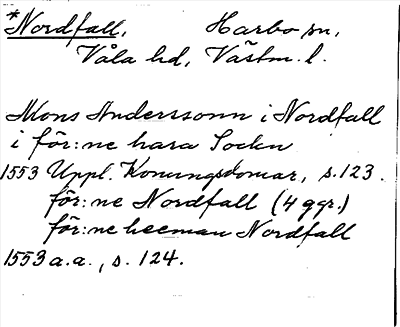 *Nordfall, Harbo sn,
Våla hd, Västm. l.
Mons Anderssonn i Nordfall
i för:ne hara Sockn
1553 Uppl. Konungsdomar, s. 123.
för:ne Nordfall (4 ggr.)
för:ne heeman Nordfall
1553 a.a., s. 124.